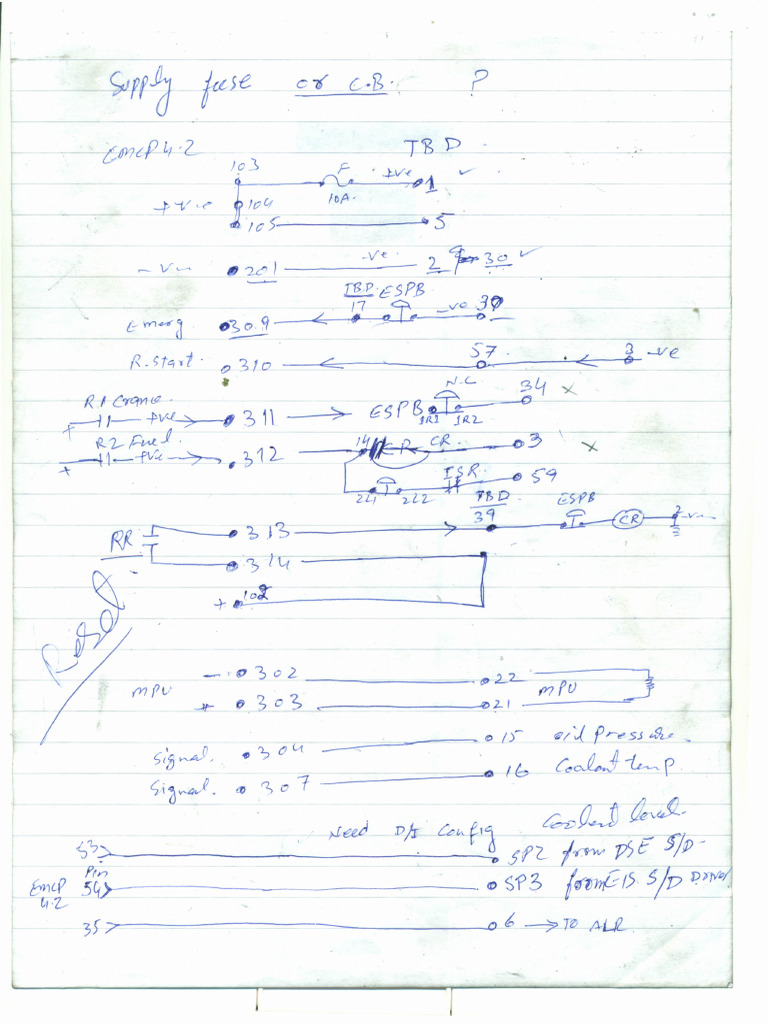 Supply fuse or C.B. ?
EMCP 4.2 TBD
103 F +ve 1
+ve 104 10A.
105 5
-ve 201 -ve 2 30
TBD ESPB
Emerg 309 17 -ve 30
R.Start. 310 57 3 -ve
R1 Crane. N.C 34 x
+ +ve 311 ESPB 1R1 1R2
R2 Fuel. 14 CR. 3 x
+ +ve 312
ISR. 59
221 222 TBD ESPB
RR 313 39 CR 2 -ve
314
+ 102
Reset
- 302 22
MPU + 303 21 MPU
Signal. 304 15 oil pressure.
Signal. 307 16 Coolant temp.
Need D/I Config Coolant level.
53 SP2 from DSE S/D-
Pin
EMCP 4.2 54 SP3 from EIS. S/D Driver
35 6 → TO ALR